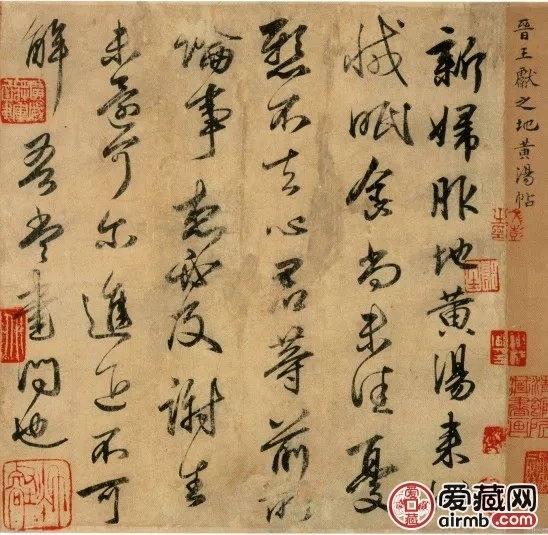 晉王獻之地黄湯帖
新婦服地黄湯來似
減眠食尚未佳憂
懸不去心君等前所
論事想必及謝生
未還可爾進退不可
解吾當書問也
爱藏网
airmb.com